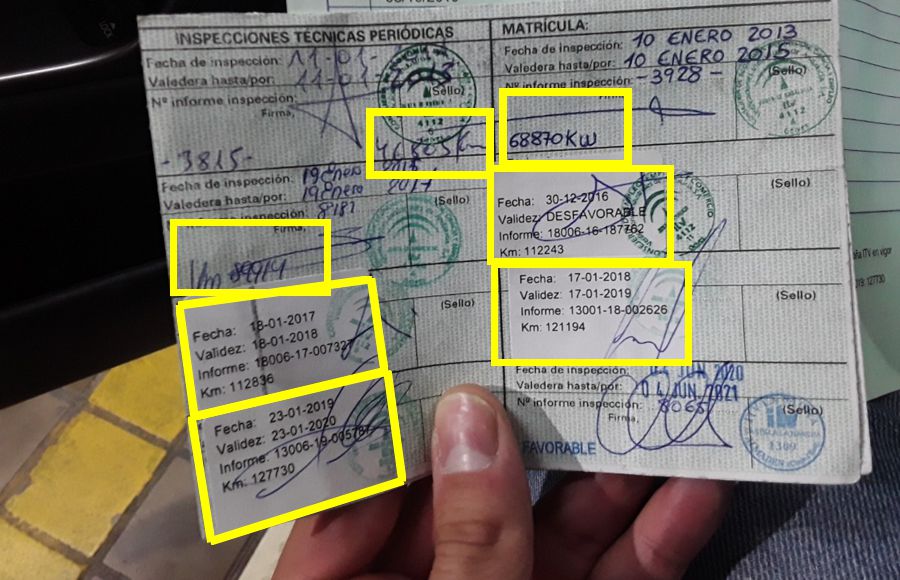 INSPECCIONES TÉCNICAS PERIÓDICAS
Fecha de inspección: 11-01-
Valedera hasta/por: 11-01-
(Sello)
Nº informe inspección:
Firma,
4112
-3815-
Km
Fecha de inspección: 19 Enero
Valedera hasta/por: 19 Enero 2017
informe inspección: 8182
(Sello)
Firma,
Km 89914
Fecha: 18-01-2017
Validez: 18-01-2018
Informe: 18006-17-007327
Km: 112836
(Sello)
Fecha: 23-01-2019
Validez: 23-01-2020
Informe: 13006-19-005787
Km: 127730
MATRÍCULA:
Fecha de inspección: 10 ENERO 2013
Valedera hasta/por: 10 ENERO 2015
Nº informe inspección: -3928-
(Sello)
Firma,
4112
68870 KM
Fecha: 30-12-2016
Validez: DESFAVORABLE
Informe: 18006-16-187762
Km: 112243
4112
(Sello)
Fecha: 17-01-2018
Validez: 17-01-2019
Informe: 13001-18-002626
Km: 121194
(Sello)
Fecha de inspección: 04 JUN 2020
Valedera hasta/por: 04 JUN. 2021
Nº informe inspección: 8065
(Sello)
Firma,
FAVORABLE
1309
ITV en vigor
127730